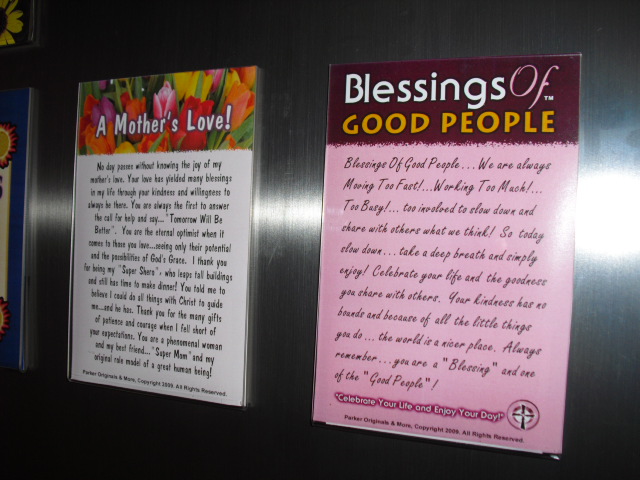 A Mother's Love!
No day passes without knowing the joy of my
mother's love. Your love has yielded many blessings
in my life through your kindness and willingness to
always be there. You are always the first to answer
the call for help and say..."Tomorrow Will Be
Better". You are the eternal optimist when it
comes to those you love...seeing only their potential
and the possibilities of God's Grace. I thank you
for being my "Super Shero" who leaps tall buildings
and still has time to make dinner! You told me to
believe I could do all things with Christ to guide
me...and he has. Thank you for the many gifts
of patience and courage when I fell short of
your expectations. You are a phenomenal woman
and my best friend..."Super Mom" and my
original role model of a great human being!
Parker Originals & More, Copyright 2009. All Rights Reserved.
Blessings Of™
GOOD PEOPLE
Blessings Of Good People...We are always
Moving Too Fast!...Working Too Much!...
Too Busy!... too involved to slow down and
share with others what we think! So today
slow down... take a deep breath and simply
enjoy! Celebrate your life and the goodness
you share with others. Your kindness has no
bounds and because of all the little things
you do... the world is a nicer place. Always
remember...you are a "Blessing" and one
of the "Good People"!
"Celebrate Your Life and Enjoy Your Day!"
Parker Originals & More, Copyright 2009. All Rights Reserved.